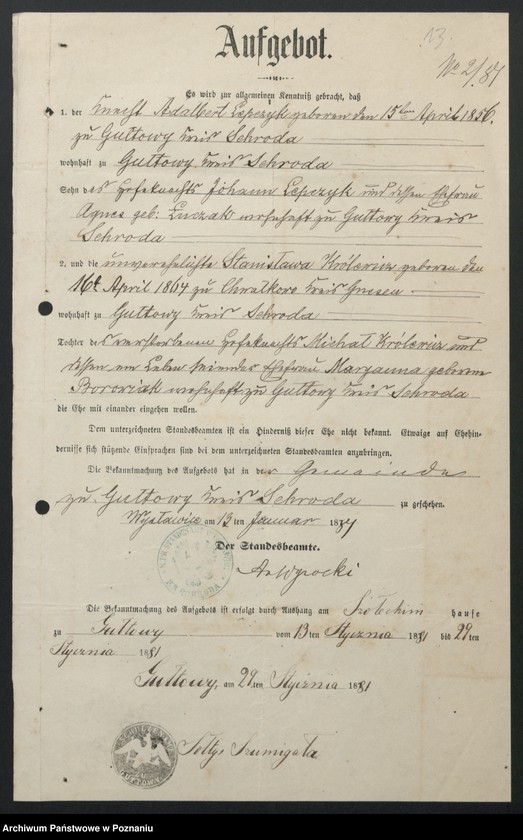 13.
No 2/81
Aufgebot.
Es wird zur allgemeinen Kenntniß gebracht, daß
1. der Knecht Adalbert Lepczyk geboren den 15ten April 1856.
zu Gultowy Kreis Schroda
wohnhaft zu Gultowy Kreis Schroda
Sohn des Hofeknechts Johann Lepczyk und dessen Ehefrau
Agnes geb: Luczak wohnhaft zu Gultowy Kreis
Schroda
2. und die unverehelichte Stanisława Królewicz geboren den
16t April 1864 zu Chwalkowo Kreis Gnesen
wohnhaft zu Gultowy Kreis Schroda
Tochter des verstorbenen Hofeknechts Michał Królewicz und
dessen am Leben Ehefrau Maryanna geborene
Borowiak wohnhaft zu Gultowy Kreis Schroda
die Ehe mit einander eingehen wollen.
Dem unterzeichneten Standesbeamten ist ein Hinderniß dieser Ehe nicht bekannt. Etwaige auf Ehehin-
dernisse sich stützende Einsprachen sind bei dem unterzeichneten Standesbeamten anzubringen.
Die Bekanntmachung des Aufgebots hat in der Gemeinde
zu Gultowy Kreis Schroda zu geschehen.
am 13ten Januar 1881
Der Standesbeamte.
Die Bekanntmachung des Aufgebots ist erfolgt durch Aushang am hause
zu Gultowy vom 13ten Stycznia 1881 bis 29ten
Stycznia 1881
Gultowy, am 29ten Stycznia 1881
Sołtys Szumigała
Archiwum Państwowe w Poznaniu